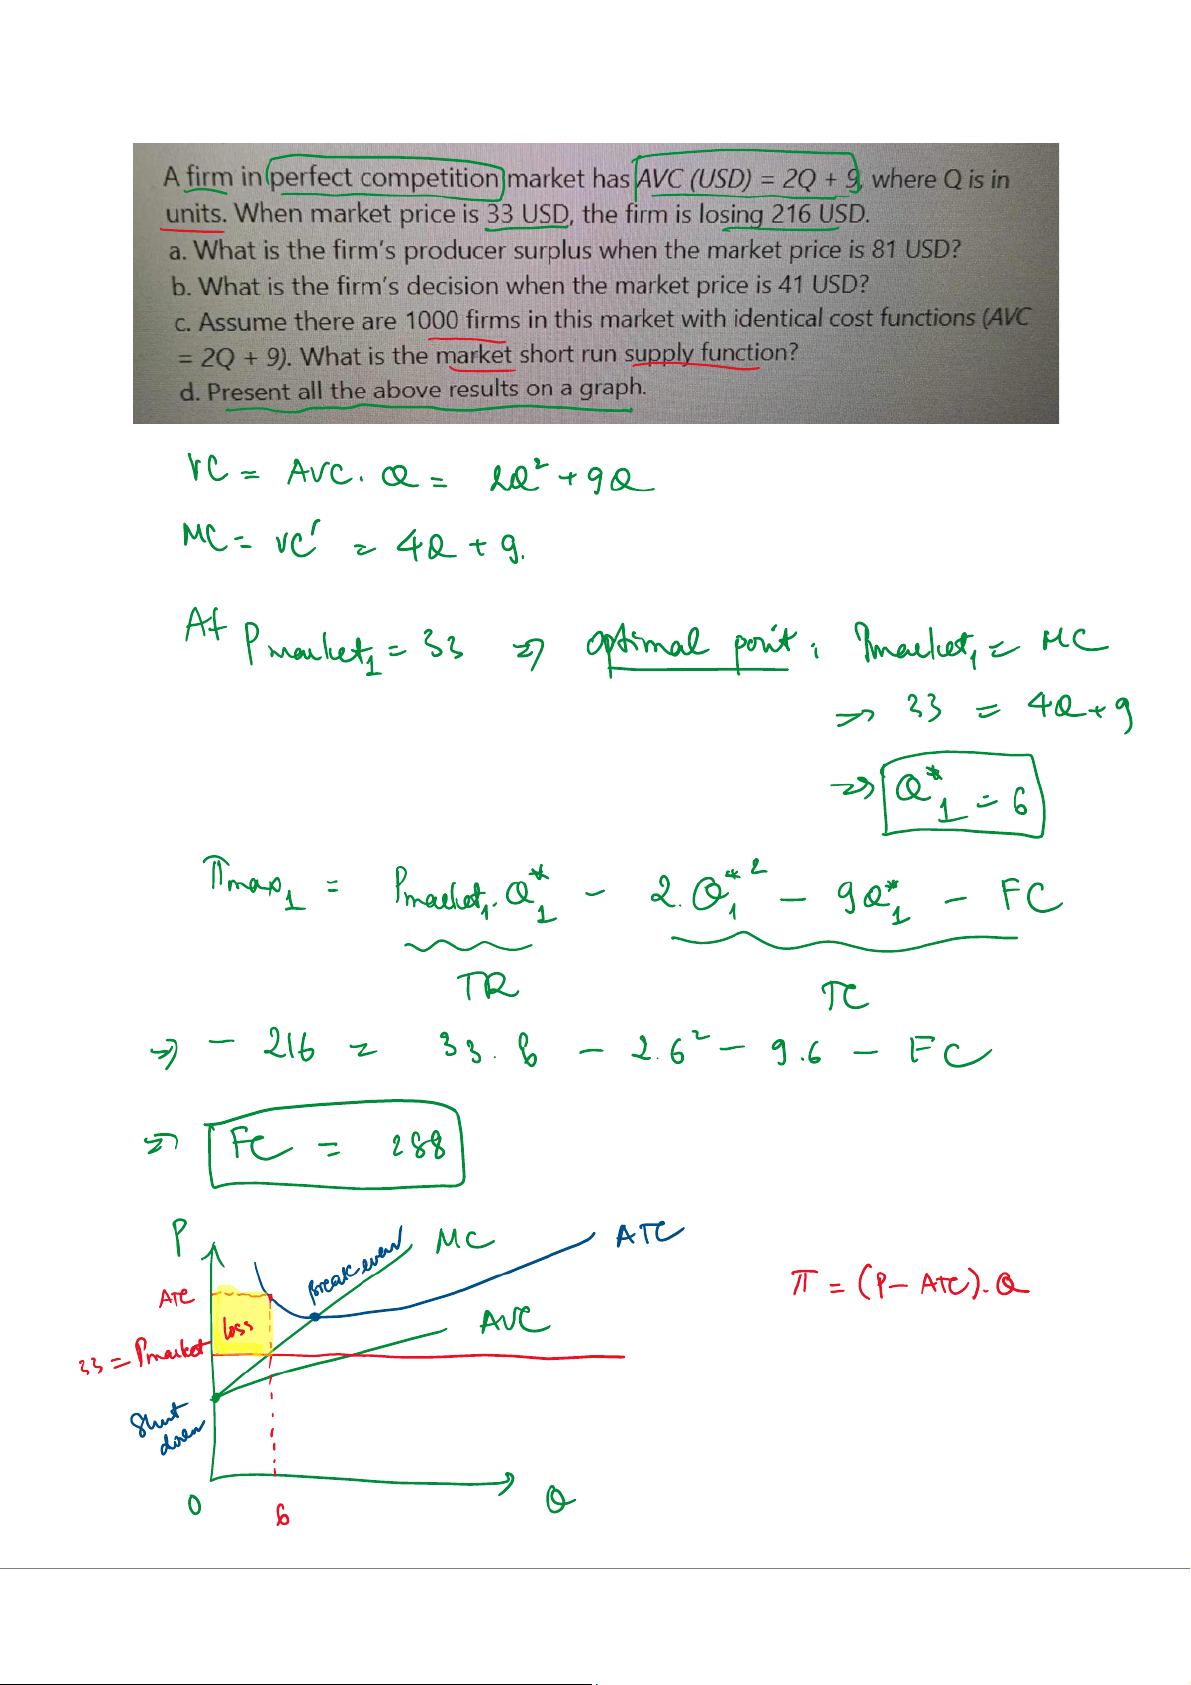 A firm in perfect competition market has AVC (USD) = 2Q + 9, where Q is in
units. When market price is 33 USD, the firm is losing 216 USD.
a. What is the firm's producer surplus when the market price is 81 USD?
b. What is the firm's decision when the market price is 41 USD?
c. Assume there are 1000 firms in this market with identical cost functions (AVC
= 2Q + 9). What is the market short run supply function?
d. Present all the above results on a graph.
VC = AVC. Q = 2Q² + 9Q
MC = VC' = 4Q + 9.
At Pmarket₁ = 33 => optimal point : Pmarket₁ = MC
=> 33 = 4Q + 9
=> Q*₁ = 6
πmax₁ = Pmarket₁. Q*₁ - 2.Q₁*² - 9Q*₁ - FC
TR
TC
=> - 216 = 33. 6 - 2.6² - 9.6 - FC
=> FC = 288
P
MC
ATC
Break even
ATC
loss
AVC
π = (P - ATC). Q
33 = Pmarket
Shut
down
0
6
Q